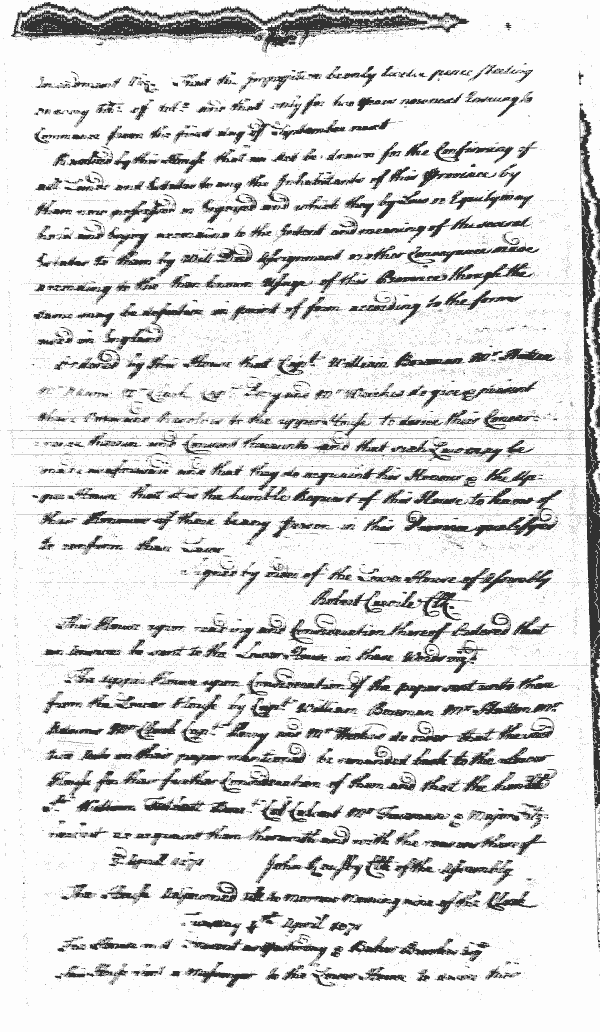 Amendment Viz. That the Imposition be only twelve pence sterling
and that only for two years
Commence from the first day of September next
Resolved by this House that an Act be drawn for the Confirming of
all Lands and Estates to any the Inhabitants of this Province by
them now possessed or enjoyed and which they by Law or Equity may
have and enjoy according to the Intent and meaning of the several
Estates to them by Will Deed Assignment or other Conveyance made
according to the then known Usage of this Province though the
same may be defective in point of form according to the forms
used in England
Ordered by this House that Capt. William Boreman Mr.
Mr. Clark Capt. and Mr. do give & present
these Resolves to the upper House to desire their Concur-
rence therein and Consent thereunto and that such Law may be
made and that they do acquaint his Honour & the Up-
per House that it is the humble Request of this House to know of
their Honours if there be any person in this Province qualifyed
to confirm these Laws
Signed by order of the Lower House of Assembly
Robert Carvile Clk.
This House upon reading and Consideration thereof Ordered that
an answer be sent to the Lower House in these Words viz.
The upper House upon Consideration of the paper sent unto them
from the Lower House by Capt. William Boreman Mr.
Mr. Clark Capt. and Mr. do order that the said
two Acts in their paper mentioned be remanded back to the Lower
House for their further Consideration of them and that the honble
William Talbott Col. Calvert Mr. & Major Fitz-
acquaint them therewith and with the reasons thereof
3 April 1671 John Clk of the Assembly
The House Adjourned till to Morrow Morning nine of the Clock
Tuesday 4th April 1671
The House met Present as yesterday & Baker Brooke Esq
This House sent a Messenger to the Lower House to desire